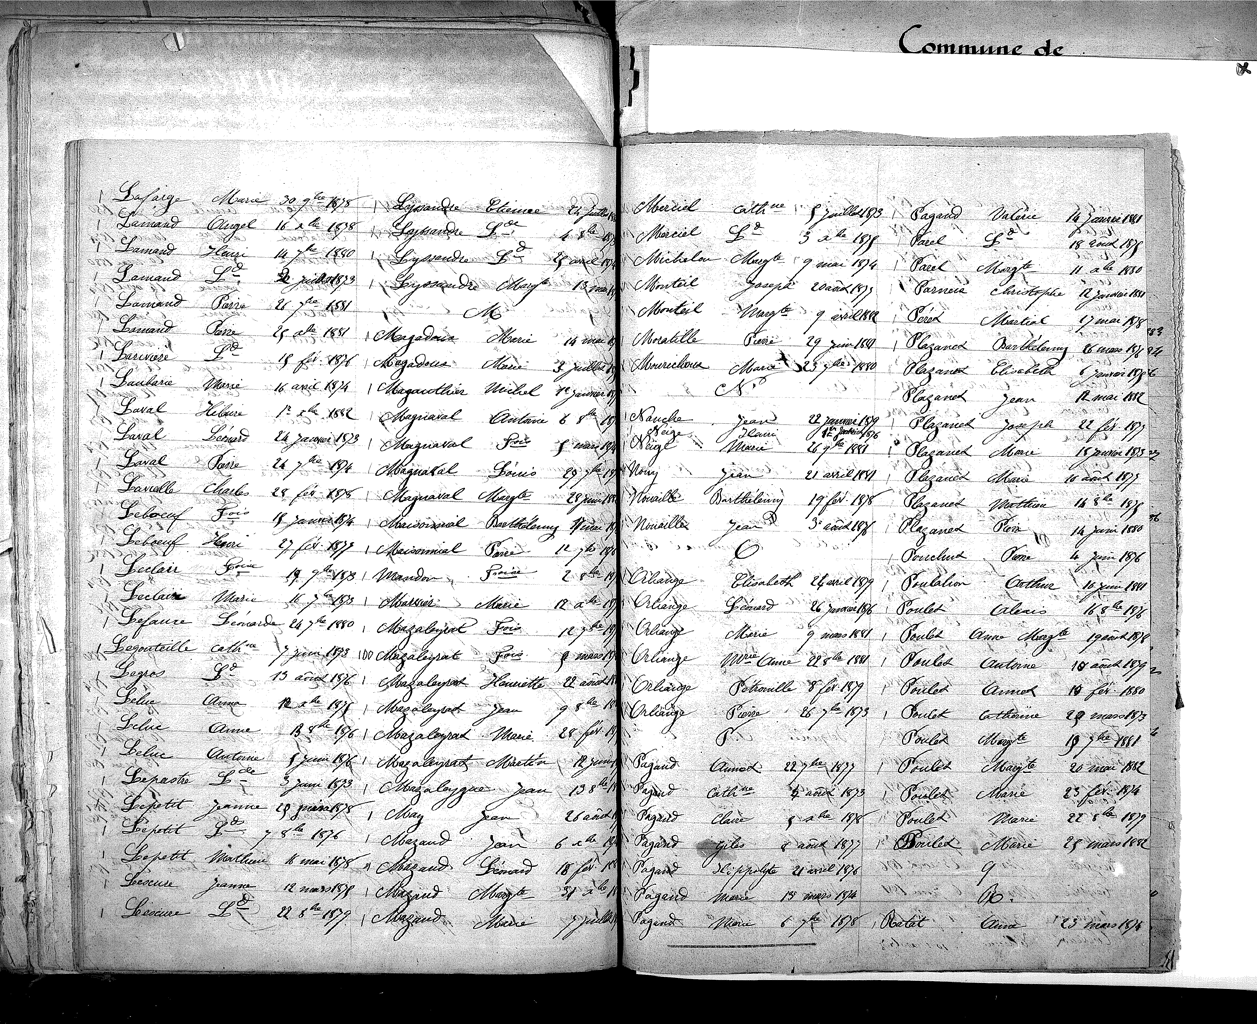 Commune de
Lafarge Marie 30 9bre 1878
Lamand Angel 16 xbre 1878
Lamand Henri 14 7bre 1880
Lamand Ld juillet 1873
Lamand Pierre 26 7bre 1881
Lamand Pierre 25 xbre 1881
Larivière Ld 15 fév. 1876
Laularie Marie 16 avril 1874
Laval Hilaire 1er xbre 1882
Laval Léonard 24 janvier 1873
Laval Pierre 24 7bre 1874
Lavialle Charles 28 fév. 1878
Leboeuf Fois 18 janvier 1874
Leboeuf Henri 27 fév 1877
Leclair 19 7bre 1873
Leclair Marie 16 7bre 1873
Lefaure Léonarde 24 7bre 1880
Legouteille Cathne 7 juin 1873
Legros Ld 13 août 1876
Leluc Anna 12 xbre 1878
Leluc Anne 13 8bre 1876
Leluc Antoine 8 juin 1876
Lepastre Lde 3 juin 1873
Lepetit Jeanne 29 mars 1878
Lepetit Ld 7 8bre 1876
Lepetit Mathieu 16 mai 1878
Lescure Jeanne 12 mars 1878
Lescure Ld 22 8bre 1879
Lyssandre Etienne 24 juillet
Lyssandre Lde 4 8bre
Lyssandre Ld 25 avril
Lyssandre Margte 13 mai
M
Magadoux Marie 14 mai
Magadoux Marie 3 juillet
Magauthier Michel 1er janvier
Magnaval Antoine 6 8bre
Magnaval Fois 5 mars
Magnaval Louis 29 7bre
Magnaval Margte 28 juin
Maisonnial Barthélemy
Maisonnial Pierre 12 7bre
Mandon 2 8bre
Marie 12 xbre
Mazaleyrat Fois 12 7bre
100 Mazaleyrat Fois 9 mars
Mazaleyrat Henriette 22 août
Mazaleyrat Jean 9 8bre
Mazaleyrat Marie 28 fév
Mazaleyrat Martin 12 juin
Mazaleygue Jean 13 8bre
May Jean 26 août
Mazaud Jean 6 xbre
Mazaud Léonard 18 févr
Mazaud Margte 31 xbre
Mazaud Marie 7 juillet
Merciel Cathne 5 juillet 1873
Merciel Ld 3 xbre 1878
Michelon Margte 9 mai 1874
Monteil Joseph 20 août 1877
Monteil Margte 9 avril 1882
Moratille Pierre 29 juin 1881
Mourichoux Marie 23 7bre 1880
N
Nauche Jean 22 janvier 1879
Marie 26 9bre 1881
Jean 21 avril 1881
Nouaille Barthélemy 19 fév. 1878
Nouaille Jean 3 août 1876
O
Orliange Elisabeth 24 avril 1879
Orliange Léonard 26 janvier 1876
Orliange Marie 9 mars 1881
Orliange Marie Anne 22 8bre 1881
Orliange Pétronille 8 fév 1879
Orliange Pierre 26 7bre 1873
P
Pagand Annet 22 7bre 1877
Pagand Cathne août 1873
Pagand Claire 5 xbre 1878
Pagand Gilles 8 août 1877
Pagand Hippolyte 21 avril 1876
Pagand Marie 13 mars 1874
Pagand Marie 6 7bre 1878
Pagand Valérie 14 janvier 1881
Parel Ld 18 août 1878
Parel Margte 11 xbre 1880
Christophe 12 janvier 1881
Péret Martial 17 mai 1878
Plazanet Barthélemy 26 mars 1876
Plazanet Elisabeth 6 janvier 1876
Plazanet Jean 12 mai 1882
Plazanet Joseph 22 fév 1877
Plazanet Marie 15 janvier 1873
Plazanet Marie 10 août 1877
Plazanet Mathieu 14 8bre 1878
Plazanet Pierre 14 juin 1880
Ponchut Pierre 4 juin 1876
Poutalion Arthur 10 juin 1881
Poulet Alexis 16 8bre 1876
Poulet Anne Margte 19 août 1878
Poulet Antoine 18 août 1879
Poulet Annet 10 fév. 1880
Poulet Catherine 29 mars 1873
Poulet Margte 19 7bre 1881
Poulet Margte 20 mai 1882
Poulet Marie 23 fév. 1874
Poulet Marie 22 8bre 1879
Poulet Marie 25 mars 1882
Q
R.
Ratat Anne 23 mars 1876